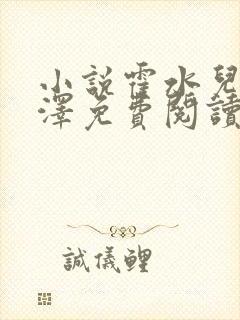 小說霍水兒
澤免費閱讀
誠儀鯉